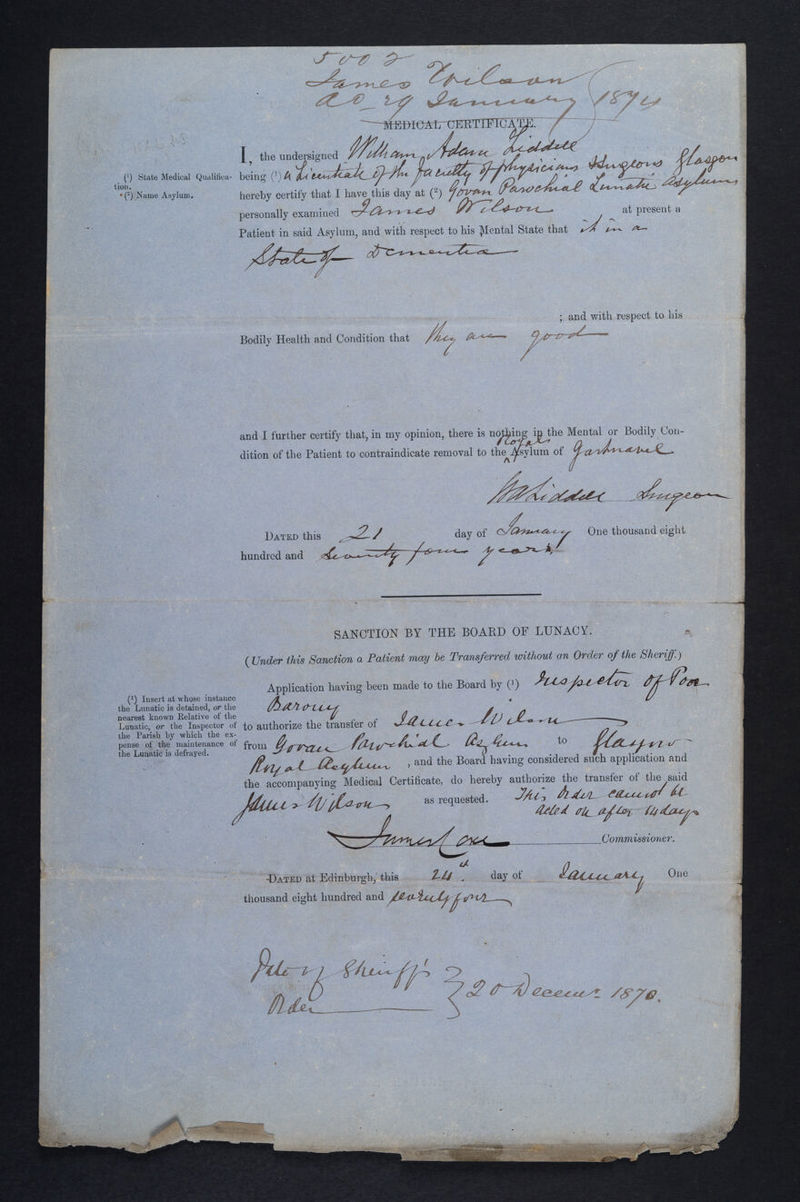 5002
James Wilson
ad 29 January 1874
MEDICAL CERTIFICATE.
I, the undersigned William Adam Liddell
(¹) State Medical Qualification.
being (¹) a Licentiate of the Faculty of Physicians & Surgeons Glasgow
(²) Name Asylum.
hereby certify that I have this day at (²) Govan Parochial Lunatic Asylum
personally examined James Wilson at present a
Patient in said Asylum, and with respect to his Mental State that it in a
State of Dementia
; and with respect to his
Bodily Health and Condition that they are good
and I further certify that, in my opinion, there is nothing in the Mental or Bodily Con-
dition of the Patient to contraindicate removal to the Royal Asylum of Gartnavel
WA Liddell Surgeon
DATED this 21 day of January One thousand eight
hundred and Seventy four years
SANCTION BY THE BOARD OF LUNACY.
(Under this Sanction a Patient may be Transferred without an Order of the Sheriff.)
(¹) Insert at whose instance
the Lunatic is detained, or the
nearest known Relative of the
Lunatic, or the Inspector of
the Parish by which the ex-
pense of the maintenance of
the Lunatic is defrayed.
Application having been made to the Board by (¹) Inspector of Poor
Barony
to authorize the transfer of James Wilson
from Govan Parochial Asylum to Glasgow
Royal Asylum, and the Board having considered such application and
the accompanying Medical Certificate, do hereby authorize the transfer of the said
James Wilson as requested. This Order cannot be
acted on after 14 days
James Coxe Commissioner.
DATED at Edinburgh, this 24th. day of January One
thousand eight hundred and seventy four
Date of Sheriff's
Order } 20 Decemr 1870.